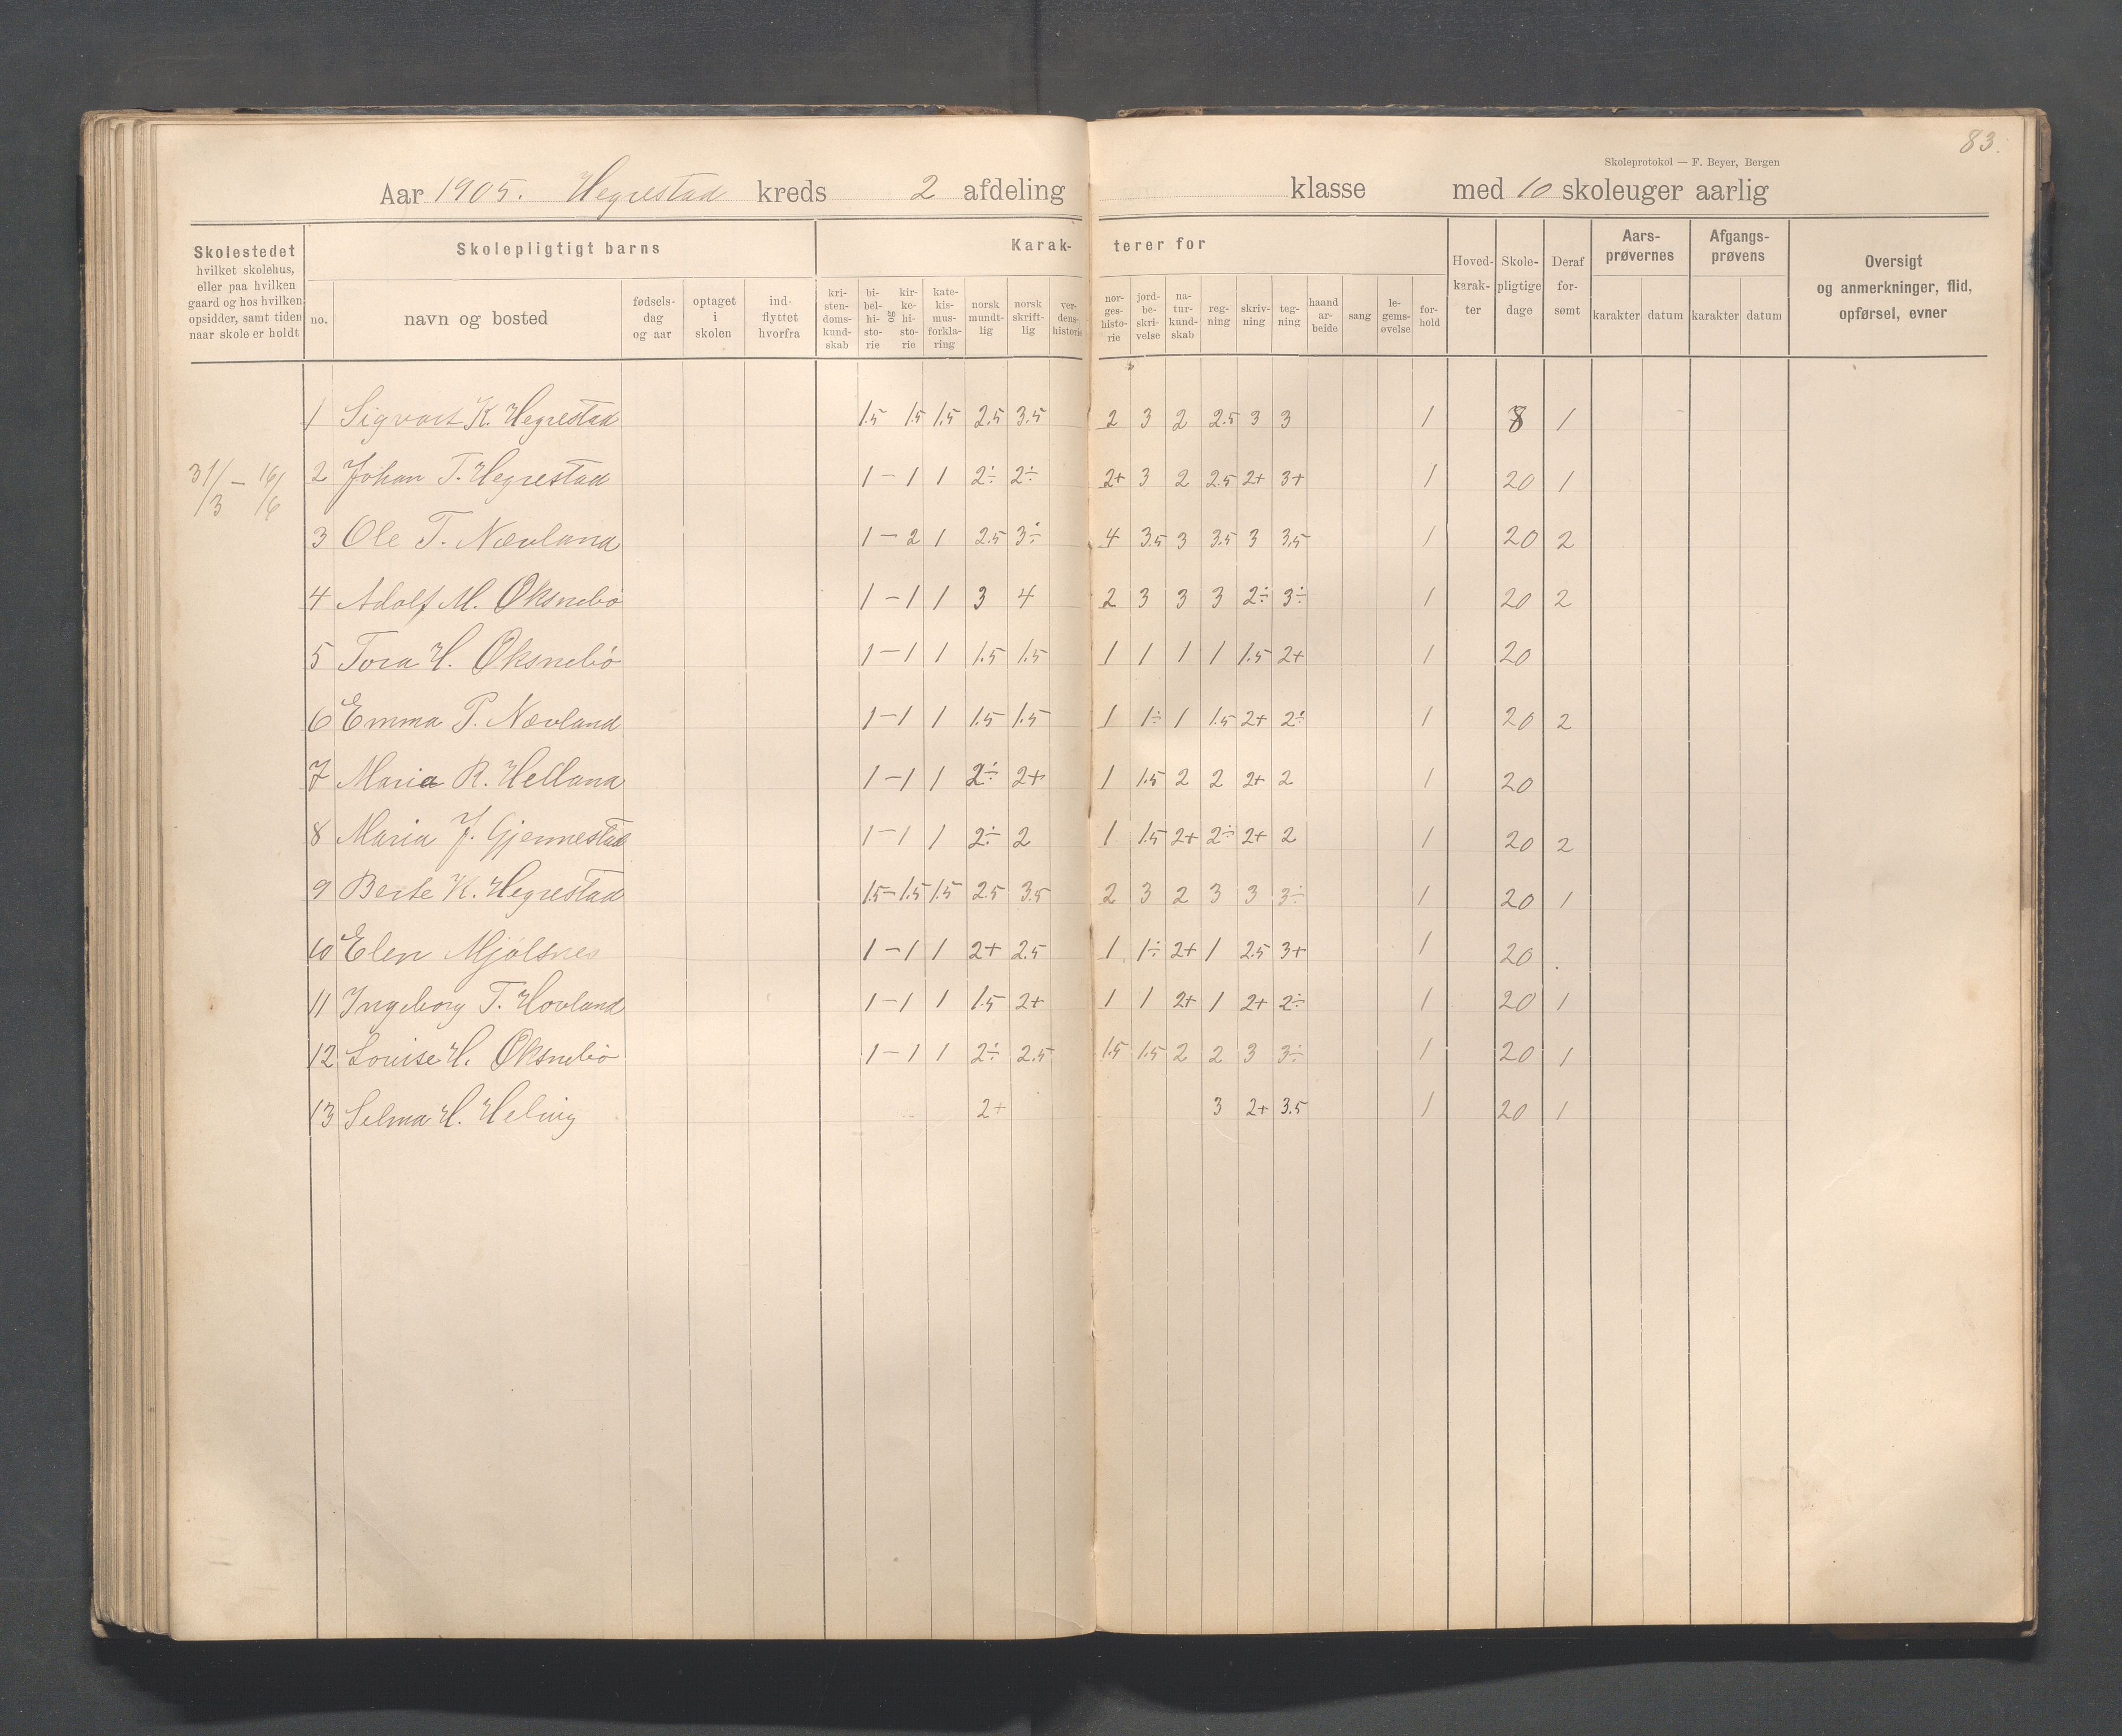 83.
Skoleprotokol — F. Beyer, Bergen
Aar 1905. Hegrestad kreds 2 afdeling klasse med 10 skoleuger aarlig
Skolestedet hvilket skolehus, eller paa hvilken gaard og hos hvilken opsidder, samt tiden naar skole er holdt
Skolepligtigt barns
no. navn og bosted fødselsdag og aar optaget i skolen indflyttet hvorfra
Karakterer for
kristendomskundskab bibelhistorie og kirkehistorie katekismusforklaring norsk mundtlig norsk skriftlig verdenshistorie norgeshistorie jordbeskrivelse naturkundskab regning skrivning tegning haandarbeide sang legemsøvelse forhold
Hovedkarakter Skolepligtige dage Deraf forsømt
Aarsprøvernes karakter datum
Afgangsprøvens karakter datum
Oversigt og anmerkninger, flid, opførsel, evner
1 Sigvart K. Hegrestad 1.5 1.5 1.5 2.5 3.5 2 3 2 2.5 3 3 1 8 1
31/3 – 16/6
2 Johan T. Hegrestad 1 – 1 1 2÷ 2÷ 2+ 3 2 2.5 2+ 3+ 1 20 1
3 Ole T. Nævland 1 – 2 1 2.5 3÷ 4 3.5 3 3.5 3 3.5 1 20 2
4 Adolf M. Øksnebø 1 – 1 1 3 4 2 3 3 3 2÷ 3÷ 1 20 2
5 Tora H. Øksnebø 1 – 1 1 1.5 1.5 1 1 1 1 1.5 2+ 1 20
6 Emma P. Nævland 1 – 1 1 1.5 1.5 1 1÷ 1 1.5 2+ 2÷ 1 20 2
7 Maria R. Helland 1 – 1 1 2÷ 2+ 1 1.5 2 2 2+ 2 1 20
8 Maria J. Gjennestad 1 – 1 1 2÷ 2 1 1.5 2+ 2÷ 2+ 2 1 20 2
9 Berte K. Hegrestad 1.5 – 1.5 1.5 2.5 3.5 2 3 2 3 3 3÷ 1 20 1
10 Elen Mjølsnes 1 – 1 1 2+ 2.5 1 1÷ 2+ 1 2.5 3+ 1 20 .
11 Ingeborg T. Hovland 1 – 1 1 1.5 2+ 1 1 2+ 1 2+ 2÷ 1 20 1
12 Louise H. Øksnebø 1 – 1 1 2÷ 2.5 1.5 1.5 2 2 3 3÷ 1 20 1
13 Selma H. 2+ 3 2+ 3.5 1 20 1